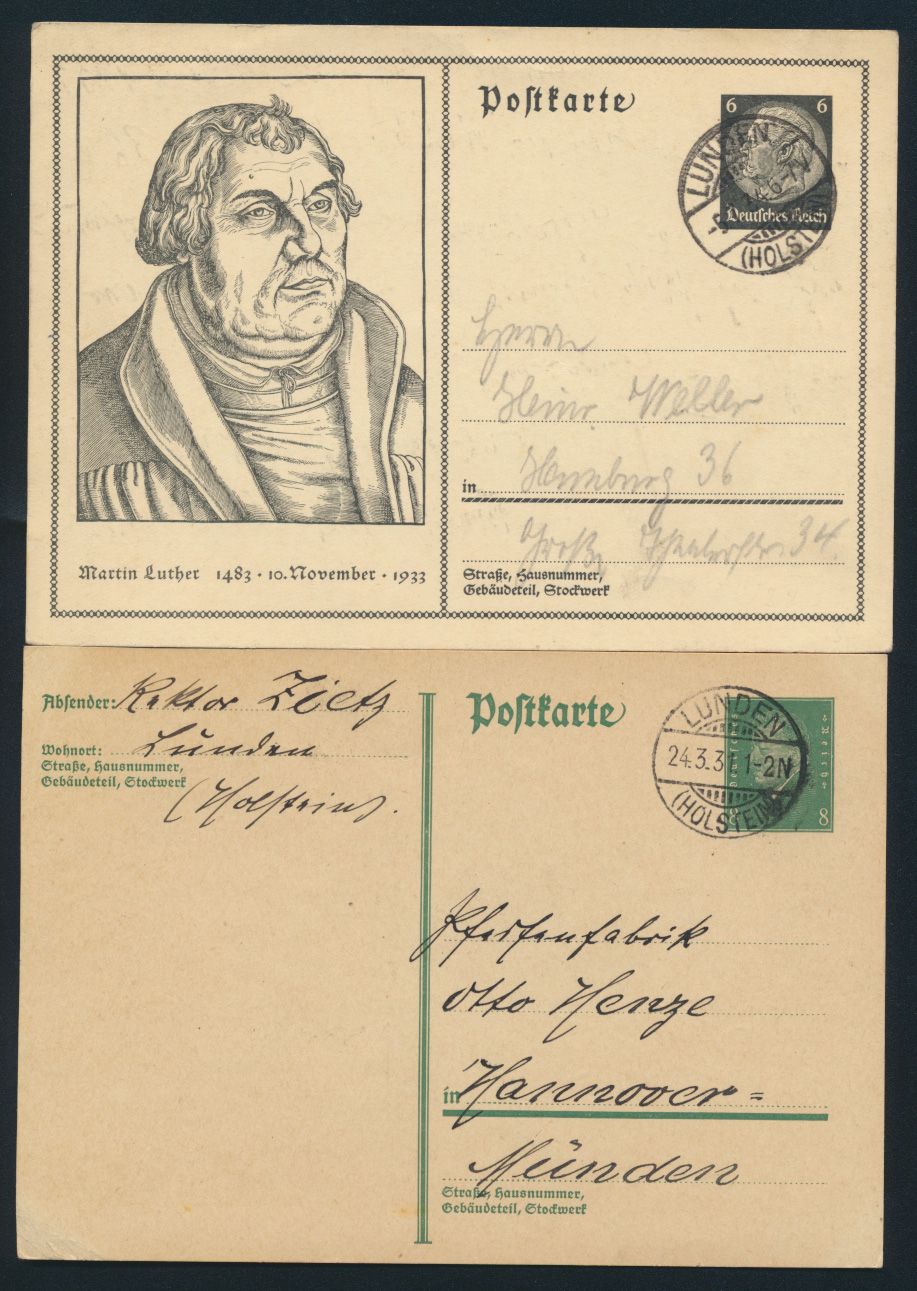 Postkarte
6 6
Deutsches Reich
LUNDEN
6-7V
(HOLSTEIN)
Herrn
Heinr. Weller
in Hamburg 36
Große 34
Straße, Hausnummer,
Gebäudeteil, Stockwerk
Martin Luther 1483 · 10. November · 1933
Absender: Rektor Zietz
Wohnort: Lunden
Straße, Hausnummer,
Gebäudeteil, Stockwerk
(Holstein).
Postkarte
LUNDEN
24.3.31 1-2N
(HOLSTEIN)
Deutsches Reich
8 8
Pfeifenfabrik
Otto Henze
in Hannover=
Münden
Straße, Hausnummer,
Gebäudeteil, Stockwerk